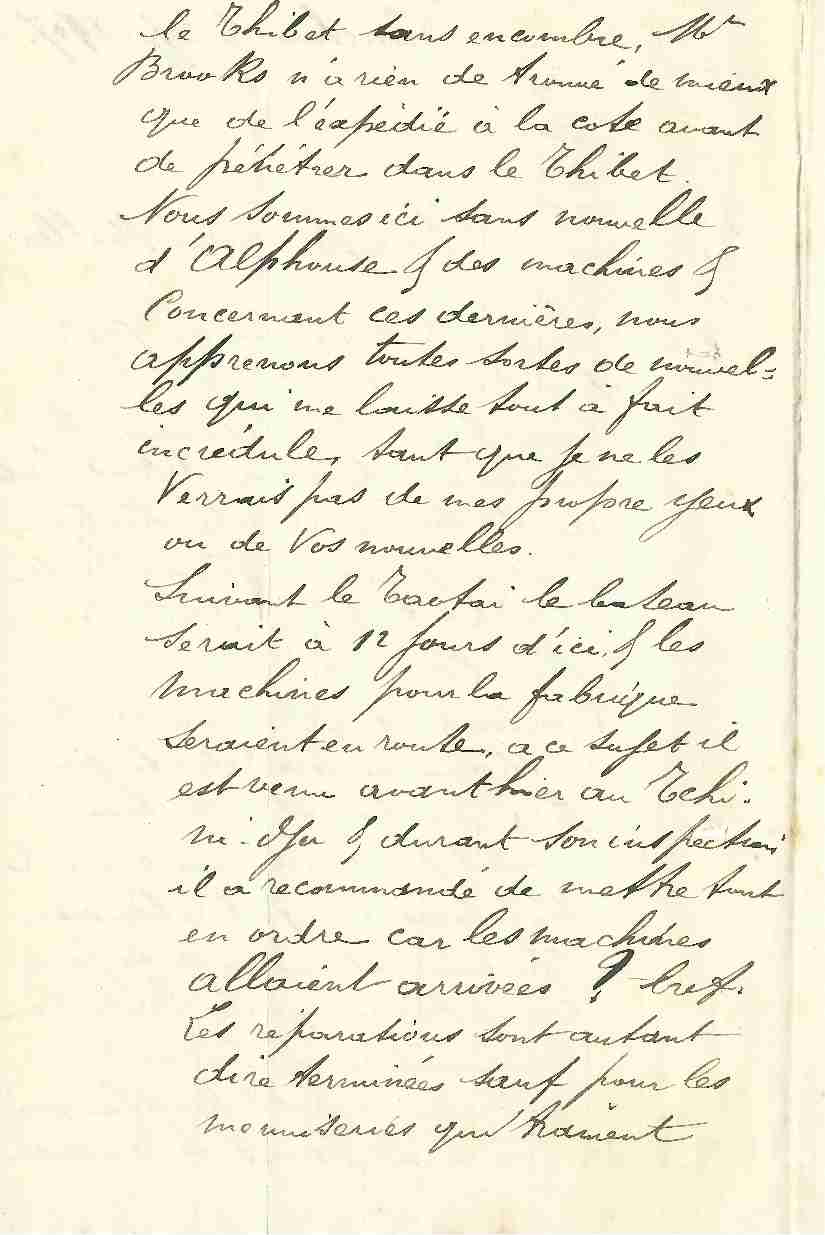 le Thibet sans encombre, Mr
Brooks n'a rien de trouvé de mieux
que de l'éxpédié à la cote avant
de pénétrer dans le Thibet.
Nous sommes ici sans nouvelle
d'Alphonse & des machines &
Concernant ces dernières, nous
apprenons toutes sortes de nouvel=
les qui me laisse tout à fait
incrédule, tant que je ne les
Verrais pas de mes propre yeux
ou de Vos nouvelles.
Suivant le Taotai le bateau
serait à 12 jours d'ici, & les
machines pour la fabrique
seraient en route, a ce sujet il
est venu avant hier au Tchi.
ni. & durant son inspection
il a recommandé de mettre tout
en ordre car les machines
allaient arrivées ? bref.
Les réparations sont autant
dire terminées sauf pour les
menuiseries qui traînent